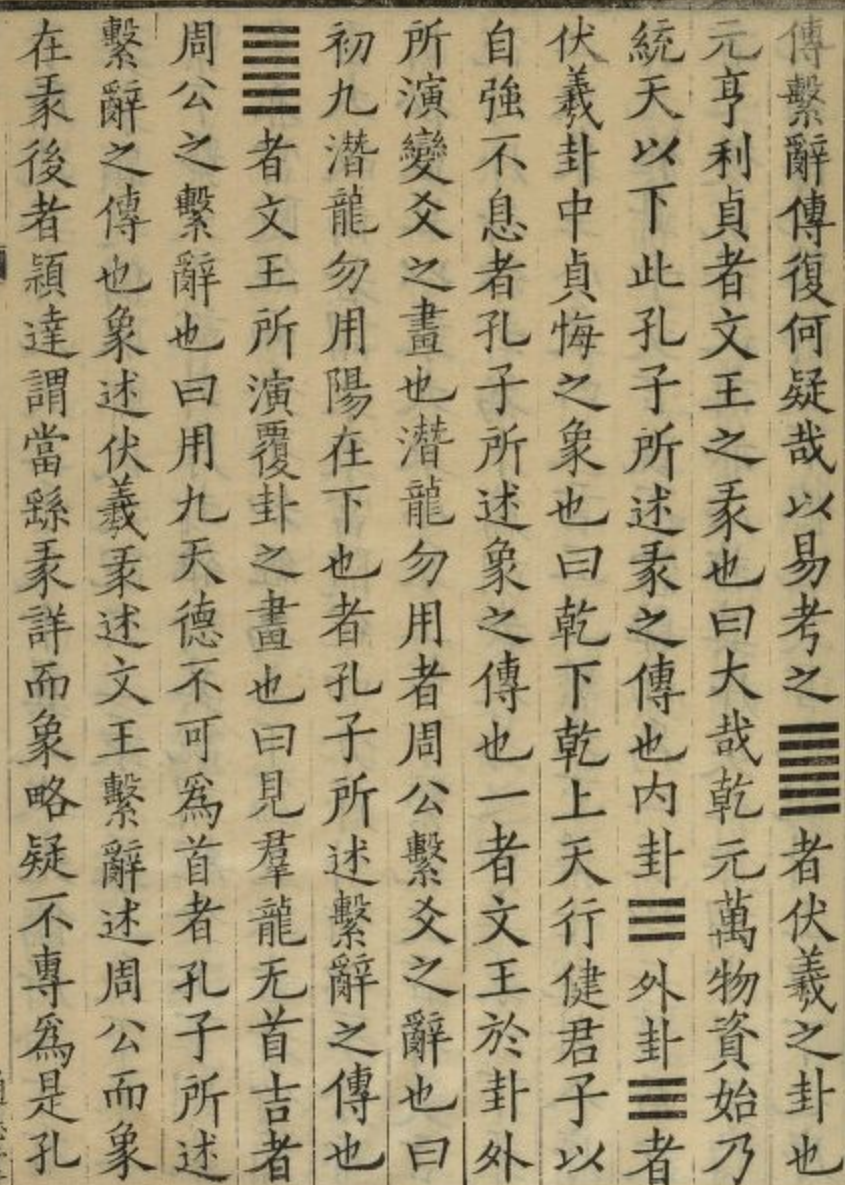 傳繫辭傳復何疑哉以易考之䷀者伏羲之卦也
元亨利貞者文王之彖也曰大哉乾元萬物資始乃
統天以下此孔子所述彖之傳也内卦☰外卦☰者
伏羲卦中貞悔之象也曰乾下乾上天行健君子以
自強不息者孔子所述象之傳也一者文王於卦外
所演變爻之畫也潛龍勿用者周公繫爻之辭也曰
初九潛龍勿用陽在下也者孔子所述繫辭之傳也
䷀者文王所演覆卦之畫也曰見羣龍无首吉者
周公之繫辭也曰用九天德不可爲首者孔子所述
繫辭之傳也象述伏羲彖述文王繫辭述周公而象
在彖後者頴達謂當繇彖詳而象略疑不專爲是孔